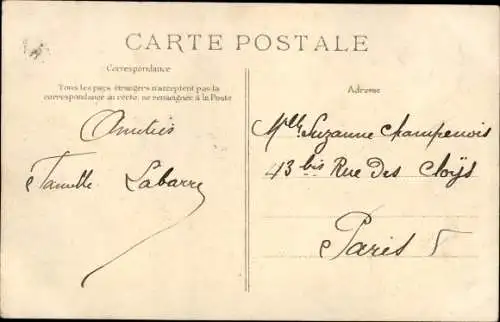 CARTE POSTALE
Correspondance
Tous les pays étrangers n'acceptent pas la
correspondance au recto, se renseigner à la Poste
Amitiés
Famille Labarre
Adresse
Mlle Suzanne Champenois
43 bis Rue Des Cloÿs
Paris